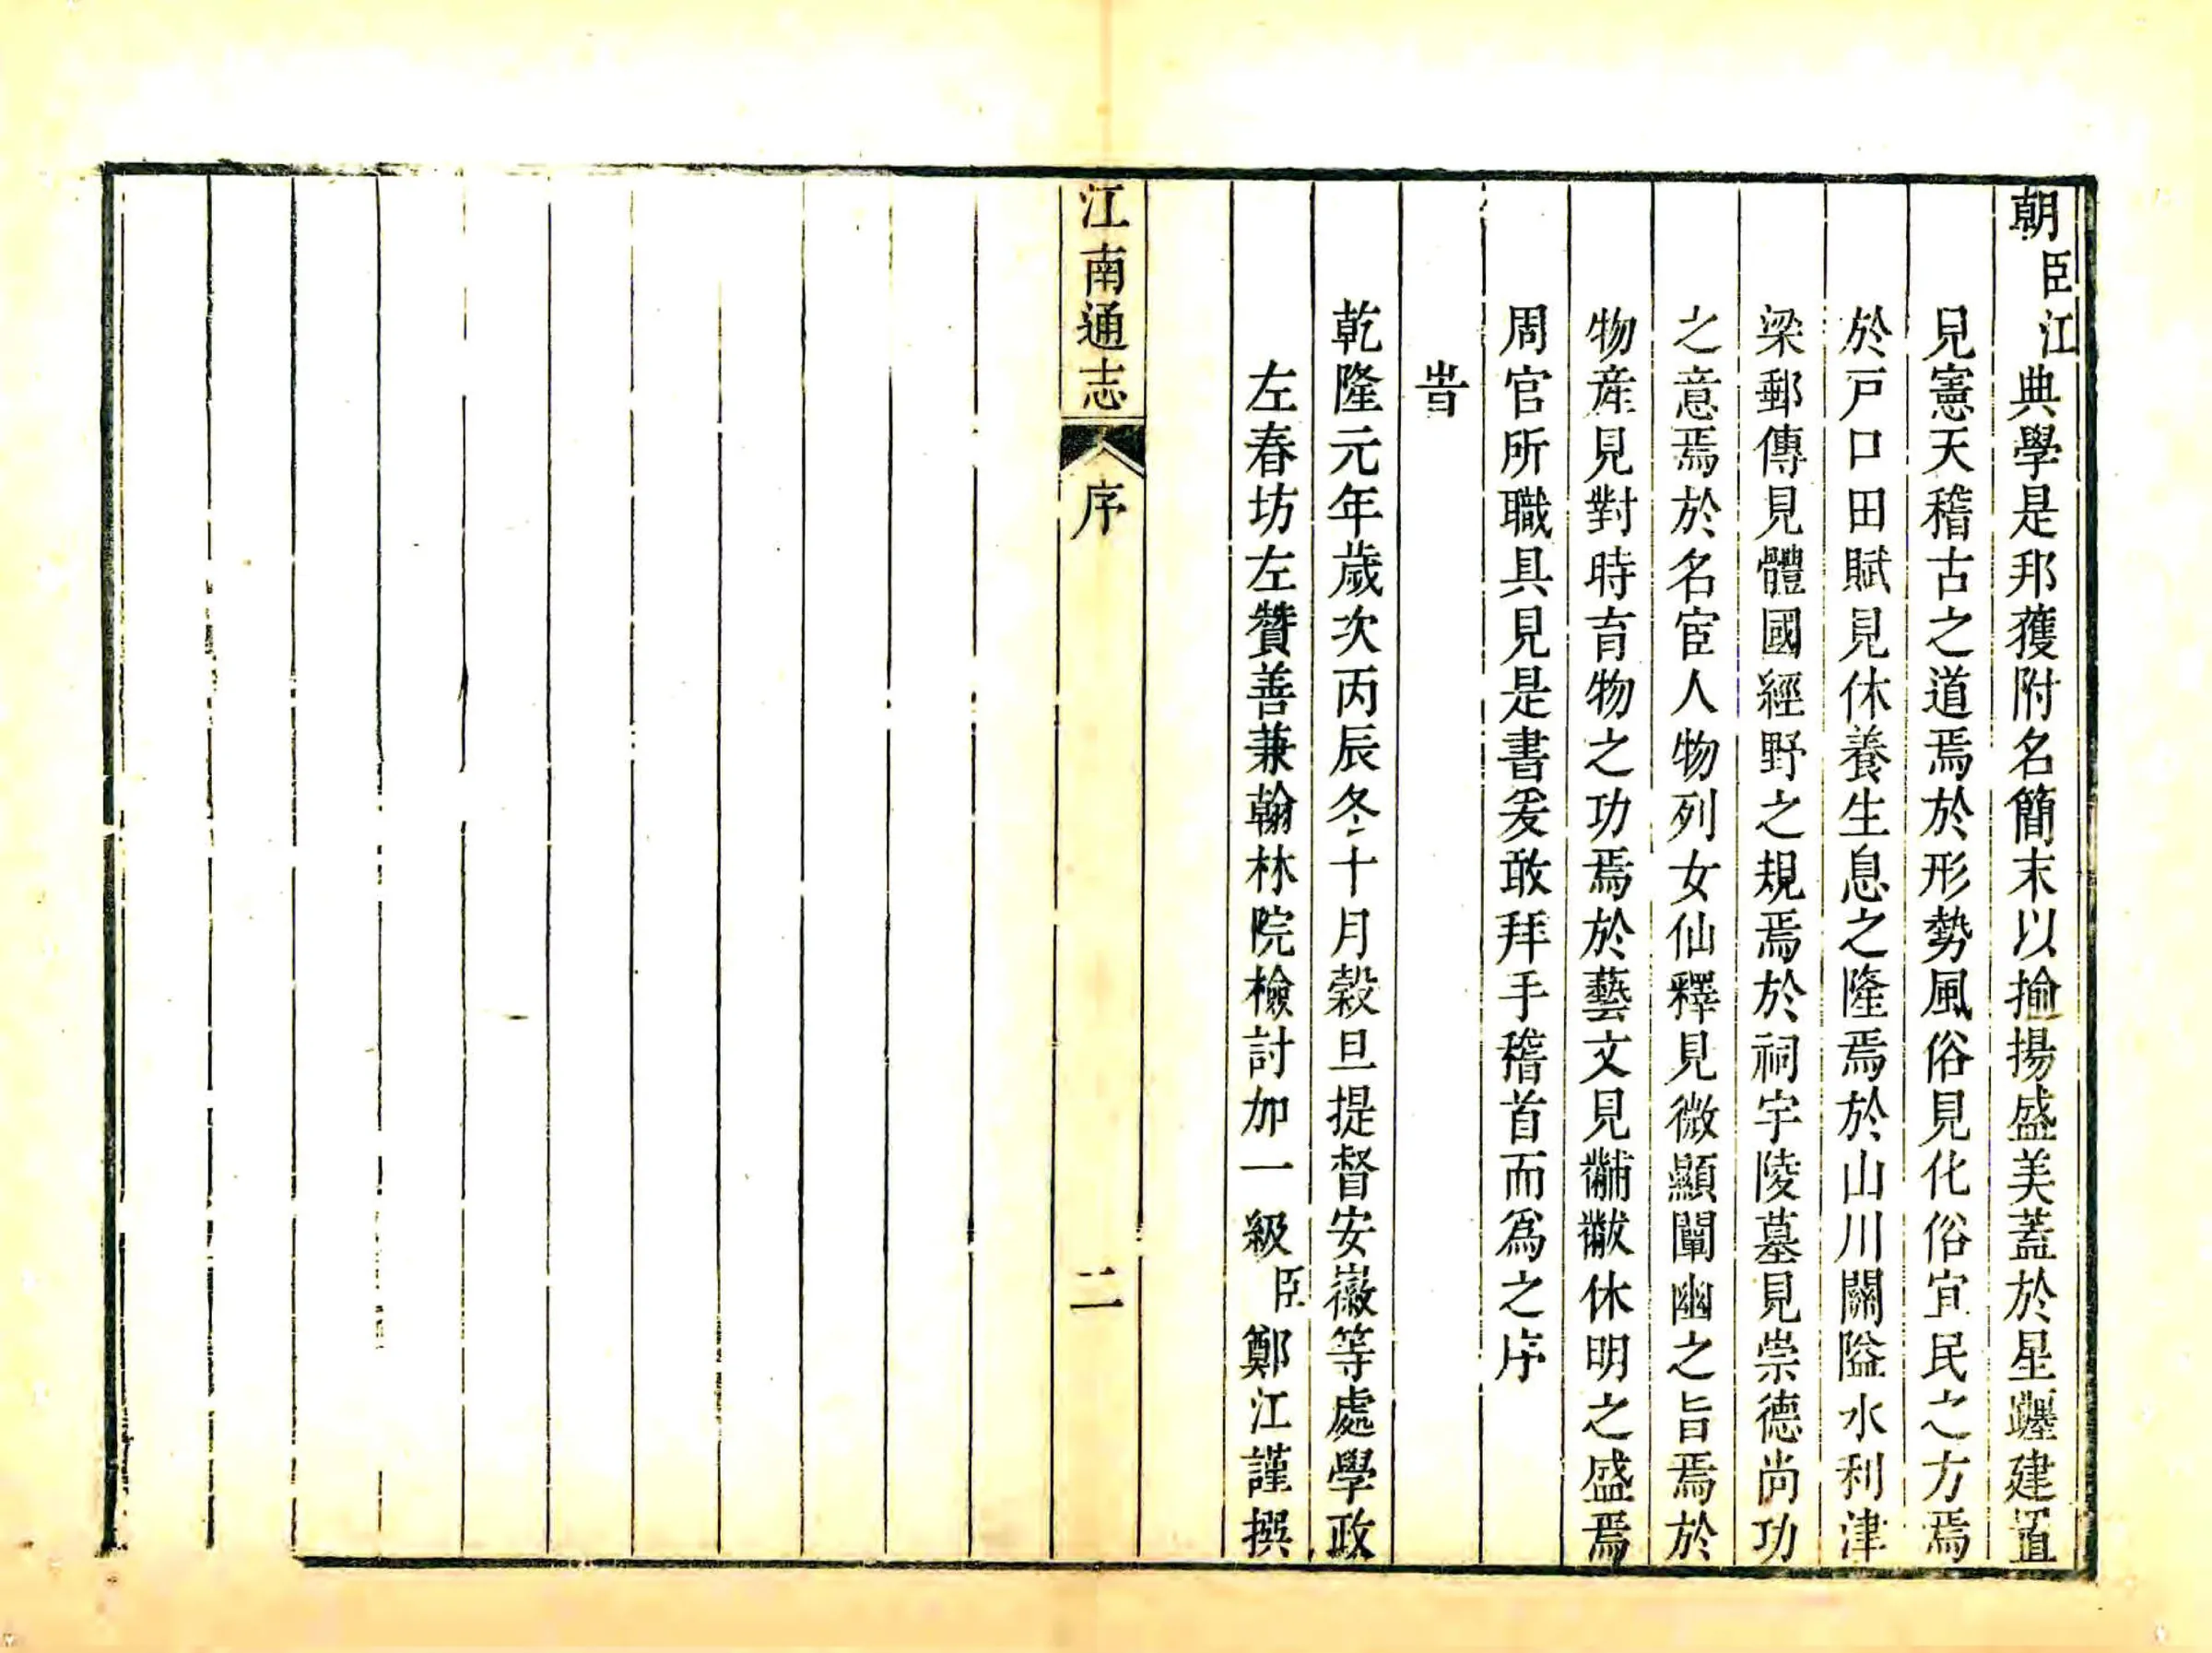 朝臣江典學是邦獲附名簡末以揄揚盛美蓋於星躔建置
見憲天稽古之道焉於形勢風俗見化俗宜民之方焉
於戸口田賦見休養生息之隆焉於山川關隘水利津
梁郵傳見體國經野之規焉於祠宇陵墓見崇德尚功
之意焉於名宦人物列女仙釋見微顯闡幽之旨焉於
物産見對時育物之功焉於藝文見黼黻休明之盛焉
周官所職具見是書爰敢拜手稽首而爲之序
旹
乾隆元年歲次丙辰冬十月穀旦提督安徽等處學政
左春坊左贊善兼翰林院檢討加一級臣鄭江謹撰
江南通志
序
二